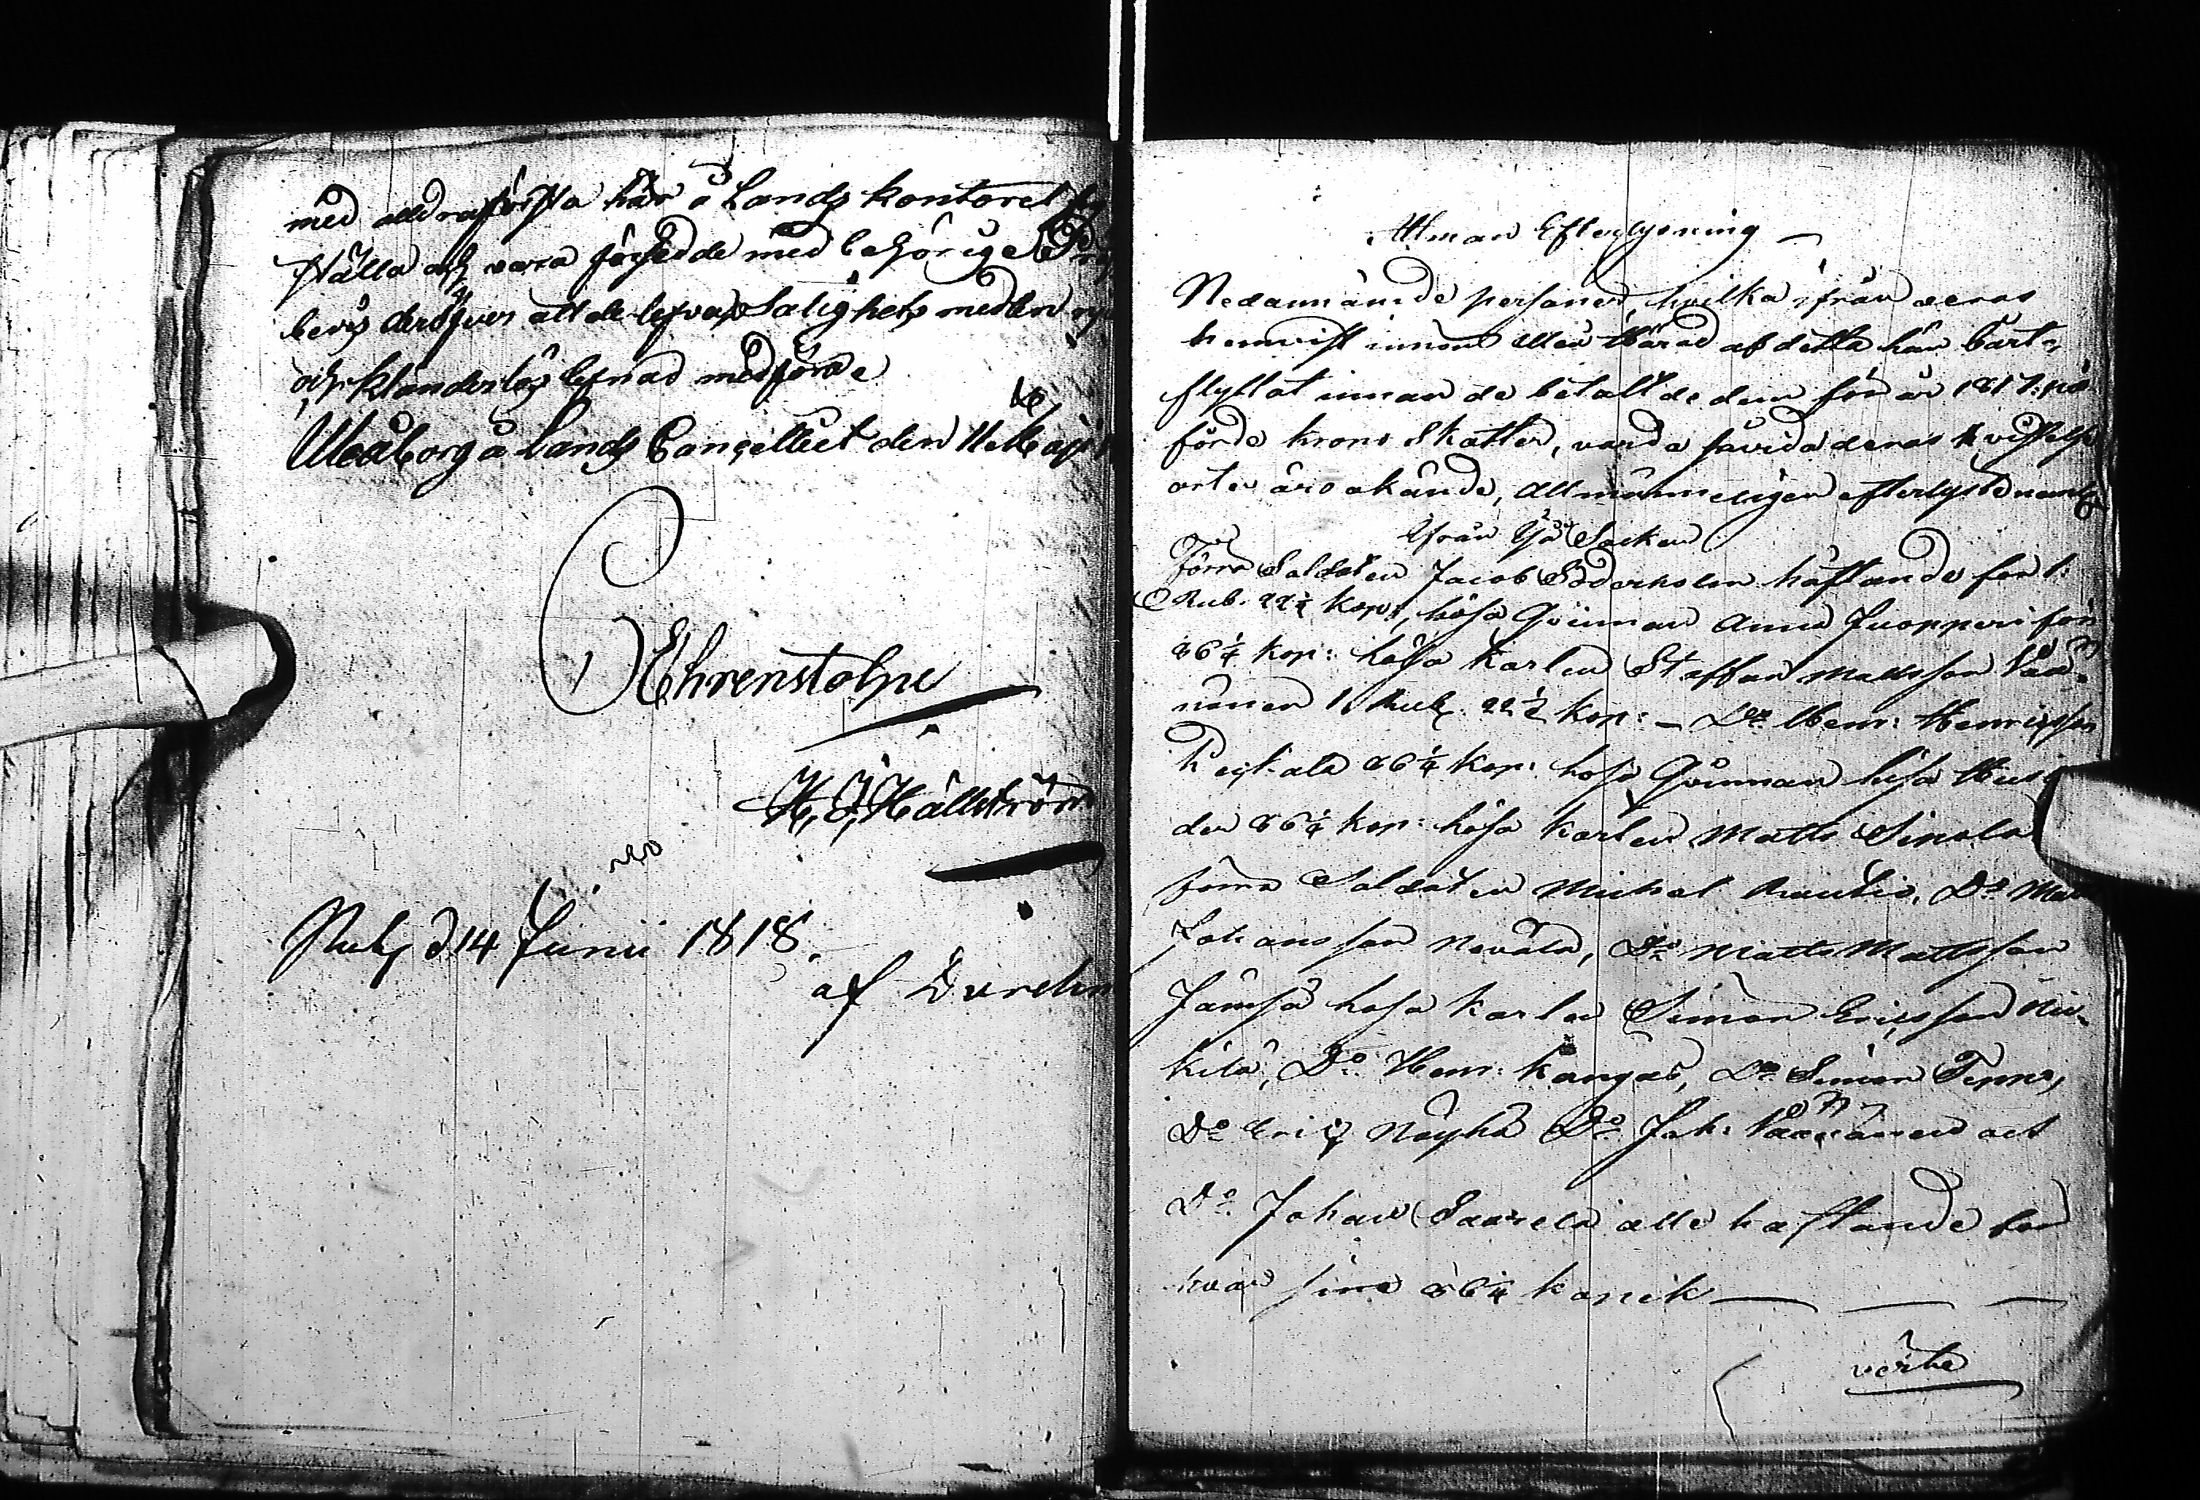 med aldraförsta här å Lands kontoret
ställa och vara försedde med behörige
bevis deröfver att de lefva, Salighets medlen
och klanderlös lefnad medföra
Uleåborg å Lands Cancelliet den 11 Maji
Ehrenstolpe
H. J. Hällström
d 14 Junii 1818.
af
Allman Efterlysning
Nedannämde personer, hvilka ifrån deras
hemvist innom Uleå Härad af detta län bart-
flyttat innan de betalt de dem för år 1817 på
förde krono Skatter, varda såvida deras vistelse
orter äro okände, allmänneligen efterlyste neml.
Ifrån Ijo Socken
Förra Soldaten Jacob Söderholm häftande för 1.
Rub. 22½ kop:, lösa Qvinnan Anna Juopperi för
86¼ kop: lösa Karlen Staffan Mattsson Vää-
nänen 1. Rub. 22½ kop: – Do Henr: Henricsson
86¼ kop: lösa Qvinnan Lisa
der 86¼ kop: lösa Karlen Matts Sipola
förra Soldaten Michel Rautio, Do Matts
Johansson Nevala, Do Matts Mattsson
Jämsä lösa Karlen Simon Ericsson
kilä, Do Henr: Kangas, Do Simon
Do Eric Näyhä Do Joh: Väänänen och
Do Johan Saarela alle häftande för
hvar sine 86¼ kopek
verte